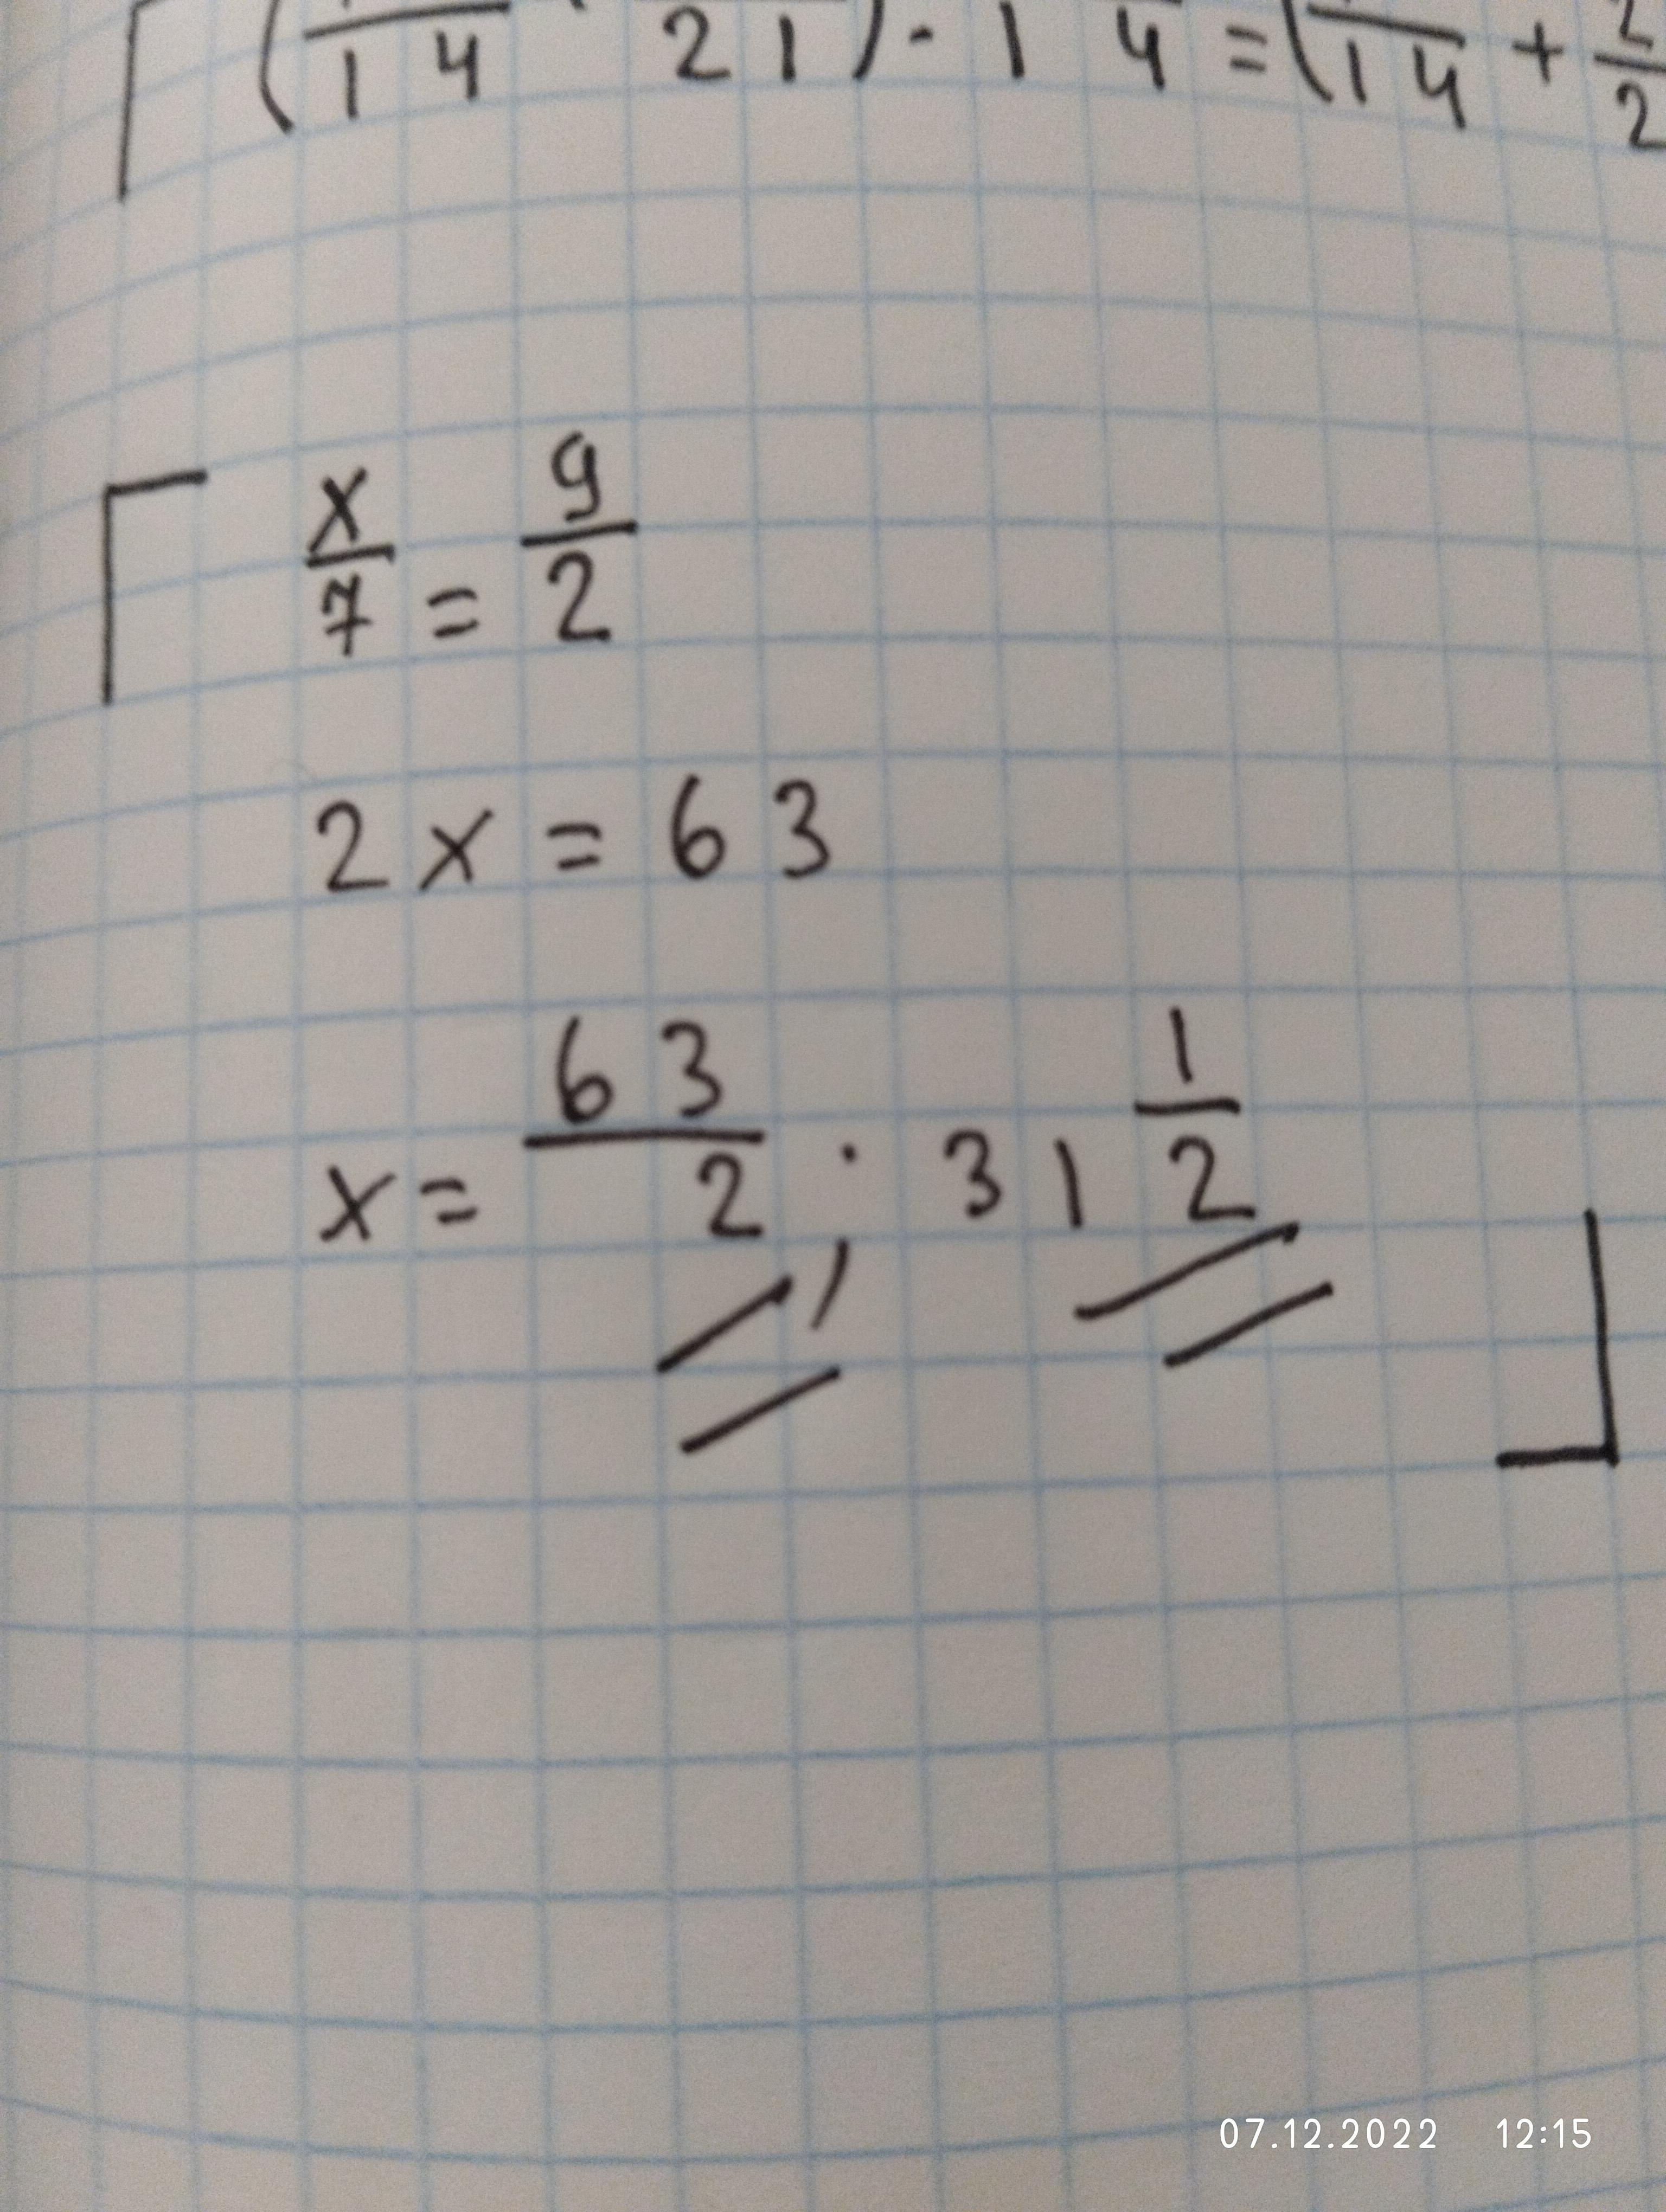 ( /14 /21) · 1 /4 = ( /14 + 2/2
x/7 = 9/2
2x = 63
x = 63/2 ; 31 1/2
07.12.2022 12:15